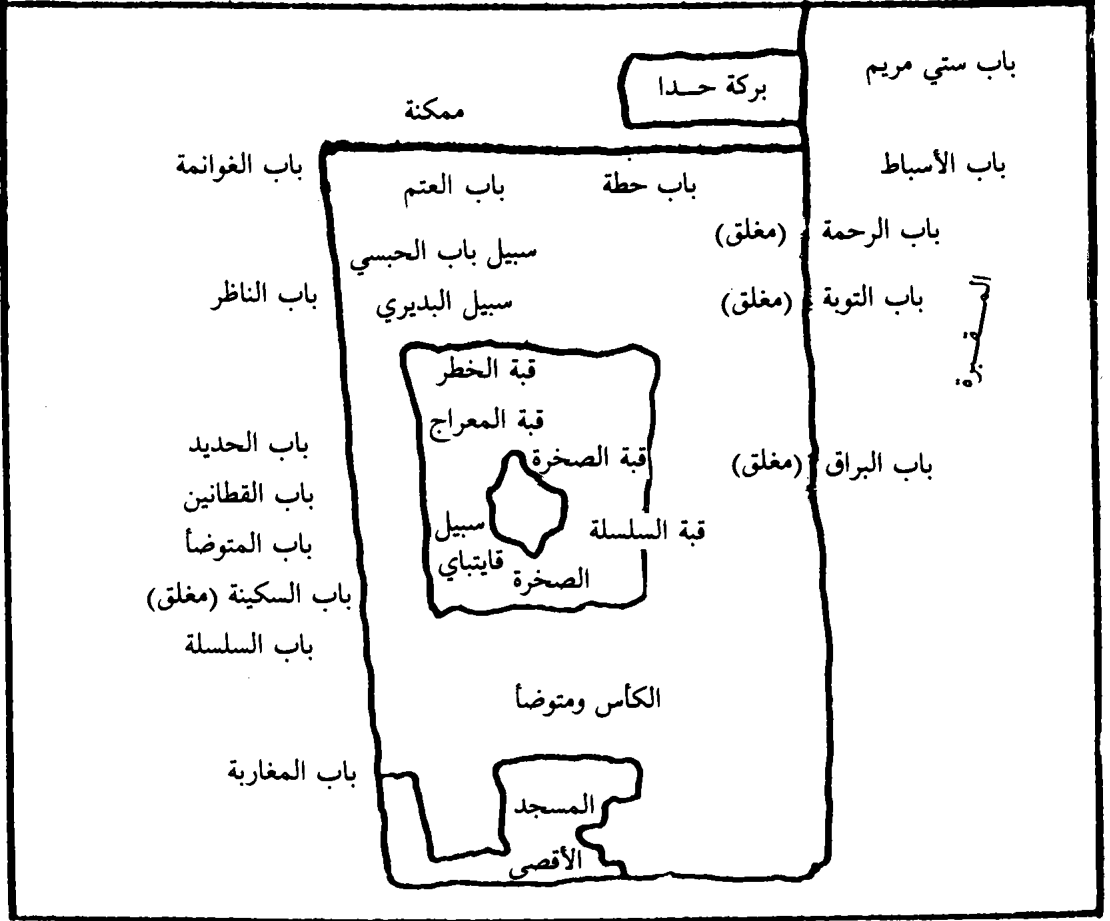 باب ستي مريم
بركة حدا
ممكنة
باب الغوانمة
باب العتم
باب حطة
باب الأسباط
باب الرحمة (مغلق)
سبيل باب الحبسي
باب الناظر
سبيل البديري
باب التوبة (مغلق)
المقبرة
قبة الخطر
قبة المعراج
باب الحديد
قبة الصخرة
باب البراق (مغلق)
باب القطانين
سبيل
قايتباي
قبة السلسلة
باب المتوضأ
الصخرة
باب السكينة (مغلق)
باب السلسلة
الكأس ومتوضأ
باب المغاربة
المسجد
الأقصى